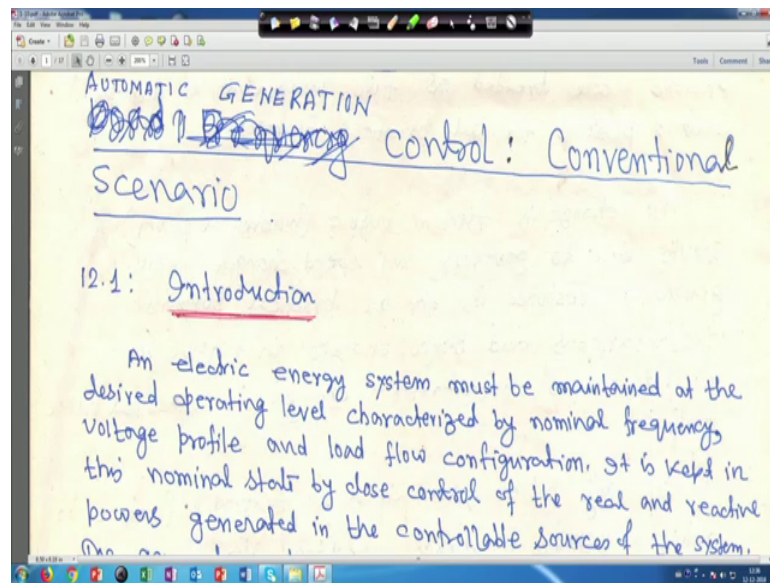 File Edit View Window Help
Create
1 / 17
200%
Tools Comment
AUTOMATIC GENERATION
Control: Conventional
Scenario
12.1: Introduction
An electric energy system must be maintained at the
desired operating level characterized by nominal frequency,
voltage profile and load flow configuration. It is kept in
this nominal state by close control of the real and reactive
powers generated in the controllable sources of the system.